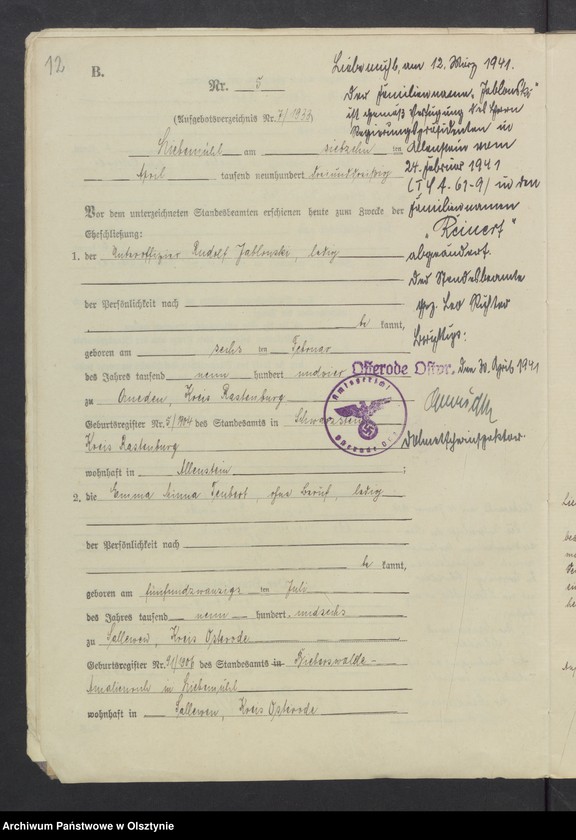 12
B.
Nr. 5
(Aufgebotsverzeichnis Nr. 7/1933)
Liebemühl am siebzehn ten
April tausend neunhundert dreiunddreißig
Vor dem unterzeichneten Standesbeamten erschienen heute zum Zwecke der
Eheschließung:
1. der Unteroffizier Rudolf Jablonski, ledig
der Persönlichkeit nach
be kannt,
geboren am sechs ten Februar
des Jahres tausend neun hundert undvier
zu Omeden, Kreis Rastenburg
Geburtsregister Nr. 3/1904 des Standesamts in Schwarzstein
Kreis Rastenburg
wohnhaft in Allenstein ;
2. die Emma Minna Teubert, ohne Beruf, ledig
der Persönlichkeit nach
be kannt,
geboren am fünfundzwanzigs ten Juli
des Jahres tausend neun hundert undsechs
zu Sallewen, Kreis Osterode
Geburtsregister Nr. 91/1906 des Standesamts in Bieberswalde
in Liebemühl
wohnhaft in Sallewen, Kreis Osterode
Liebemühl, am 12. März 1941.
Der Familienname „Jablonski"
ist gemäß Verfügung des Herrn
Regierungspräsidenten in
Allenstein vom
24. Februar 1941
(I 61-9) in den
Familiennamen
„Reinert"
abgeändert.
Der Standesbeamte
gez. Leo Richter
Beglaubigt:
Osterode Ostpr. den 30. April 1941
Amtsgericht
Osterode Ostpr.
Archiwum Państwowe w Olsztynie